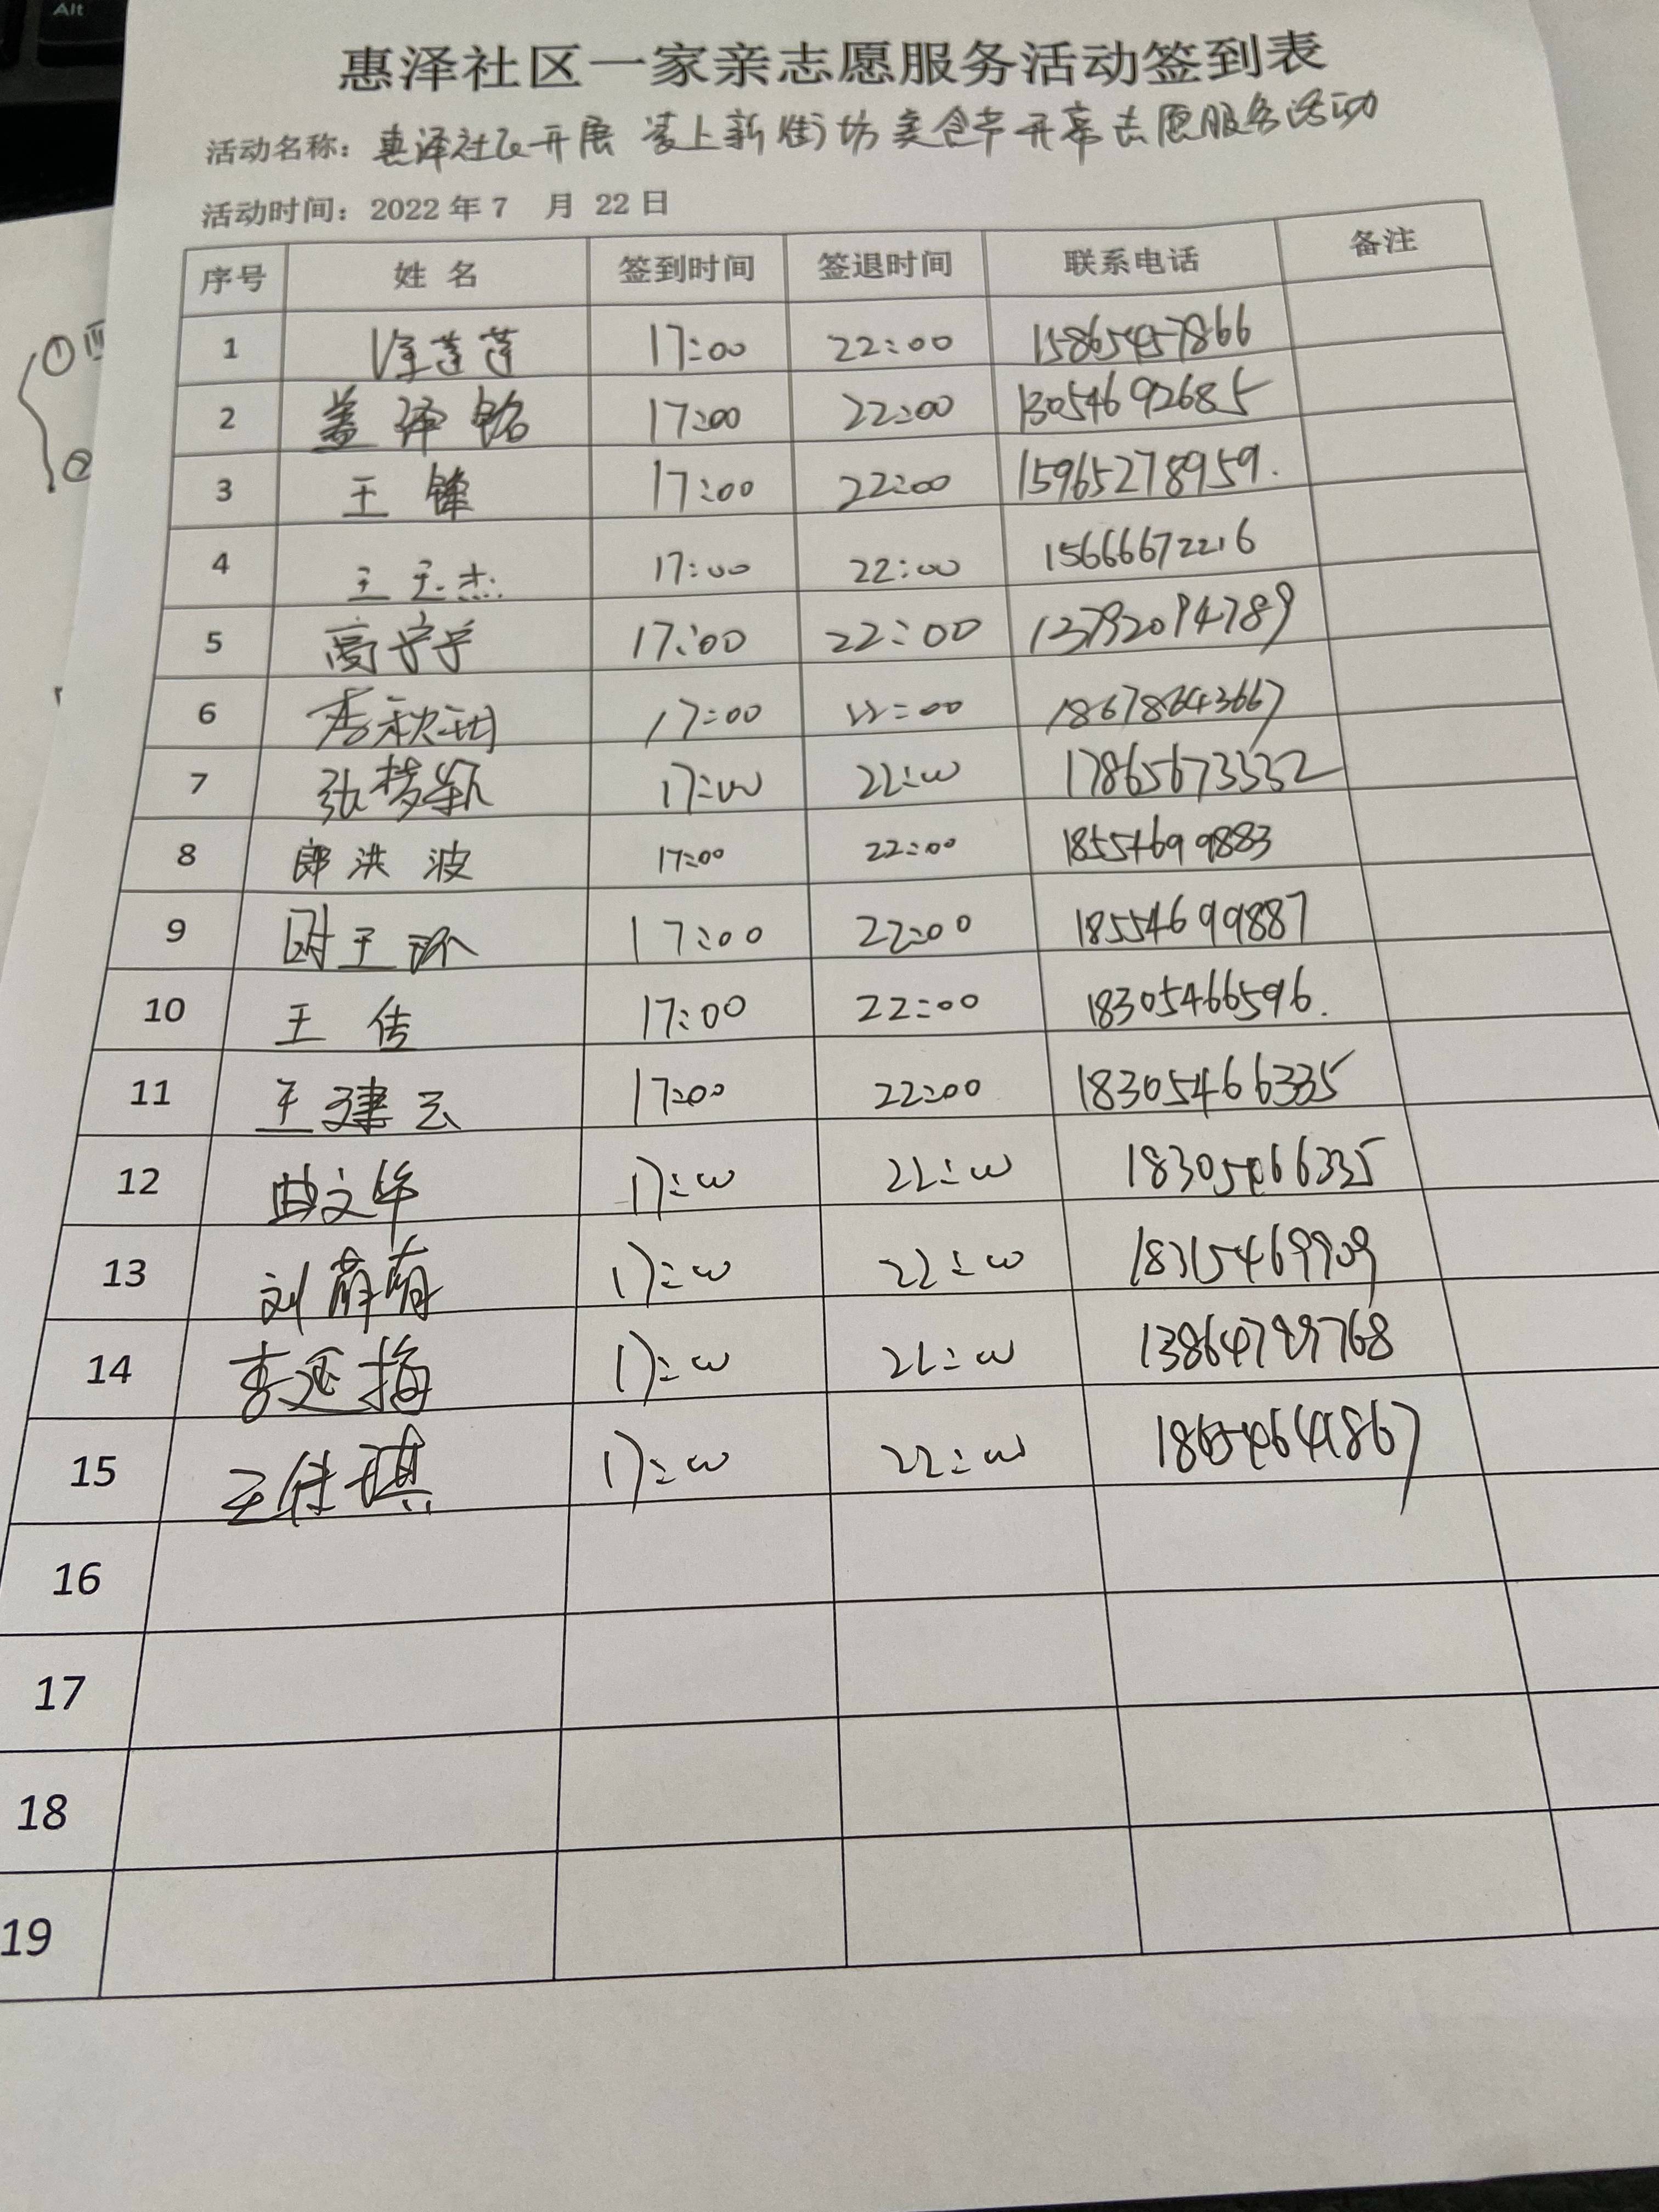 惠泽社区一家亲志愿服务活动签到表
活动名称：惠泽社区开展 上新街坊美食节开幕志愿服务活动
活动时间：2022年7 月 22日
序号 姓名 签到时间 签退时间 联系电话 备注
1 莲莲 17:00 22:00 15865457866
2 盖泽铭 17:00 22:00 13054692685
3 王锋 17:00 22:00 15965278959.
4 王玉杰 17:00 22:00 15666672216
5 高宁宁 17:00 22:00
6 李秋 17:00 22:00 18678643667
7 张梦颖 17:00 22:00 17865673532
8 郎洪波 17:00 22:00 18554699883
9 17:00 22:00 18554699887
10 王传 17:00 22:00 18305466596.
11 王建云 17:00 22:00 18305466335
12 曲文华 17:00 22:00 18305466335
13 刘萌萌 17:00 22:00 18315469909
14 李延梅 17:00 22:00
15 王佳琪 17:00 22:00
16
17
18
19
Alt